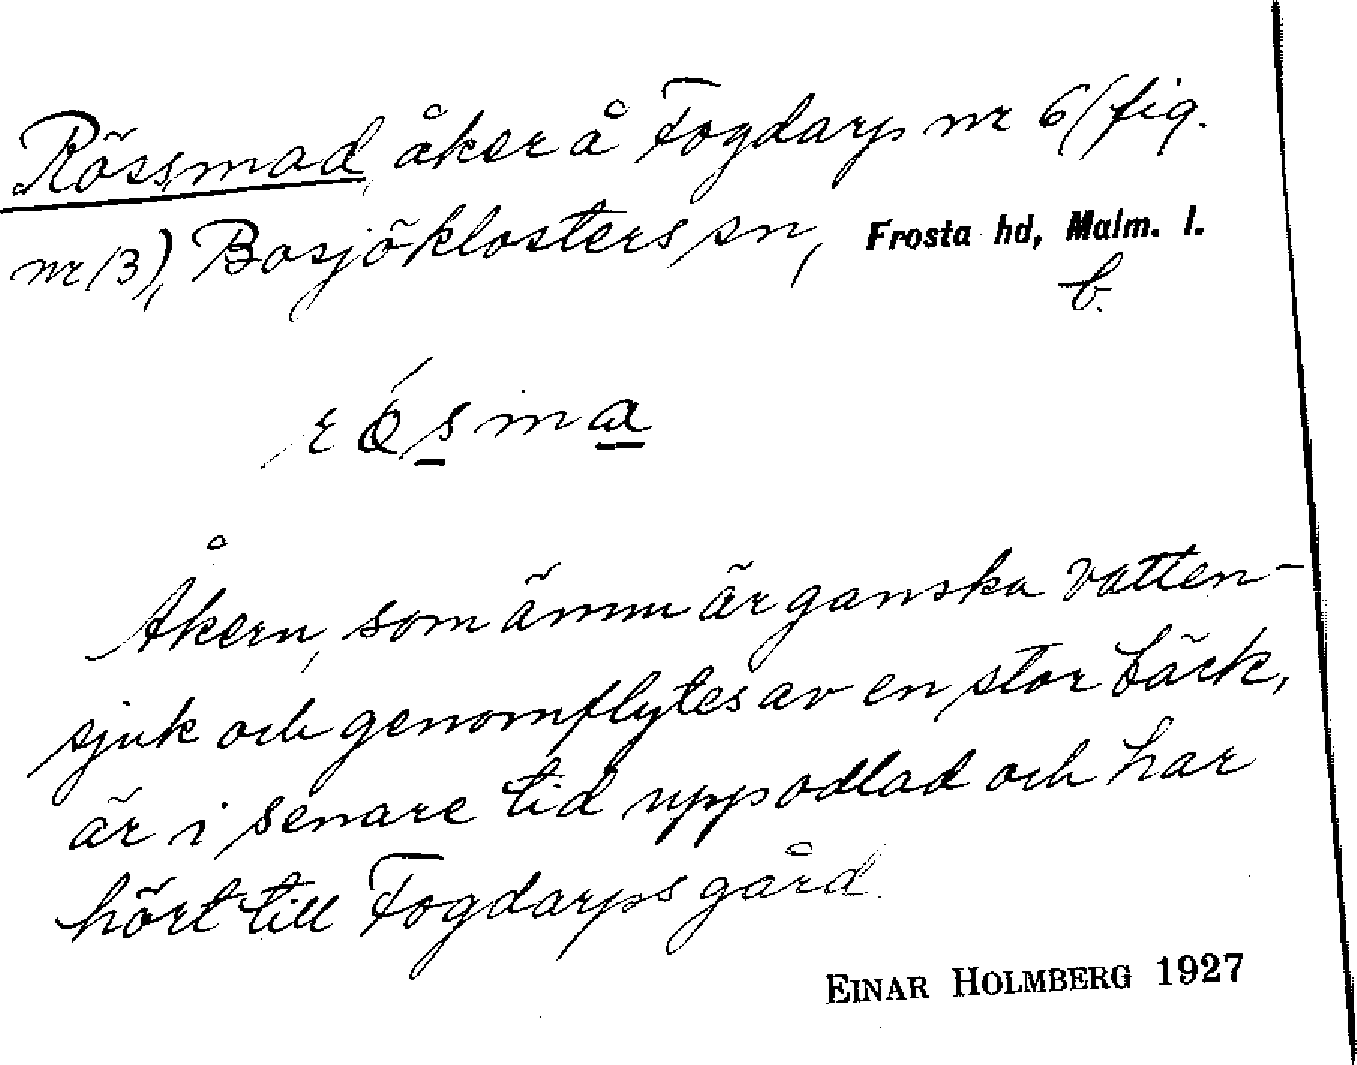 Rössmad, åker å Fogdarp nr 6 (fig.
nr 13), Bosjöklosters sn, Frosta hd, Malm. l.
b.
rǿsma
Åkern, som ännu är ganska vatten-
sjuk och genomflytes av en stor bäck,
är i senare tid uppodlad och har
hört till Fogdarps gård.
EINAR HOLMBERG 1927